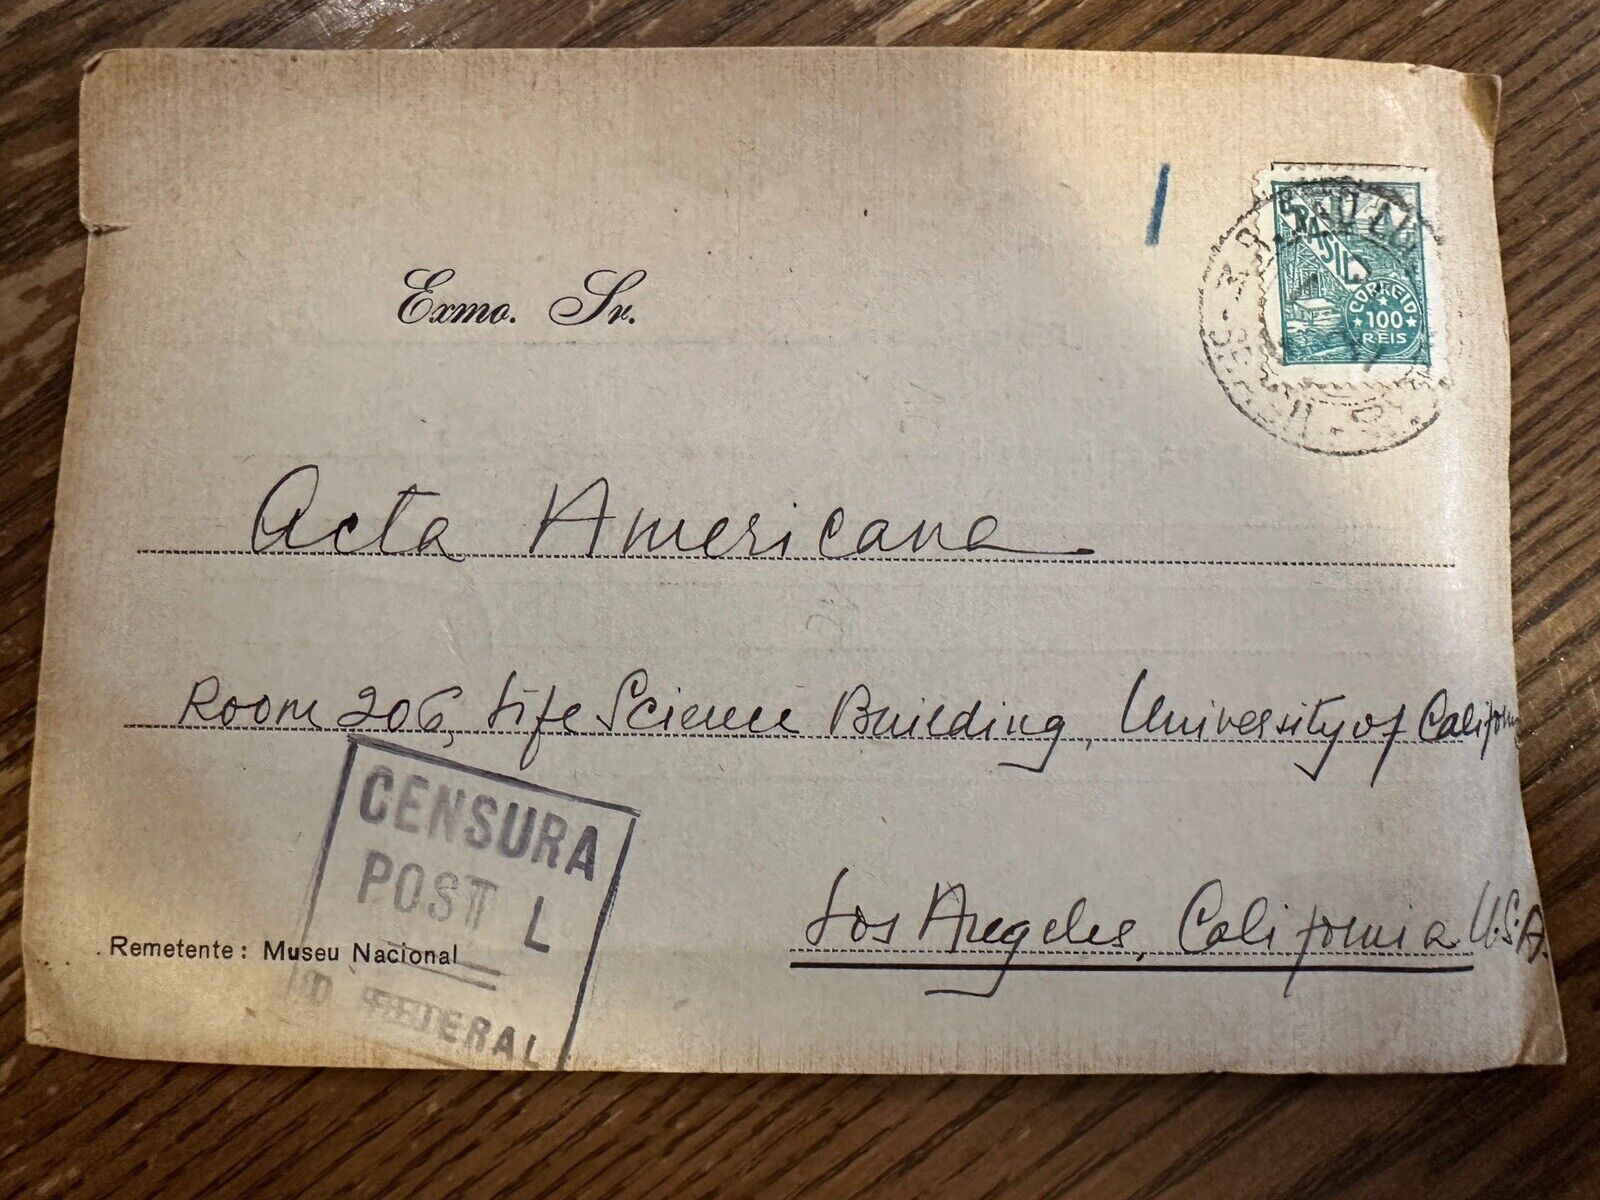 BRASIL
CORREIO
100
REIS
Exmo. Sr.
Acta Americana
Room 206, Life Science Building, University of California
Los Angeles, California U.S.A.
CENSURA
POST L
Remetente: Museu Nacional
D FEDERAL